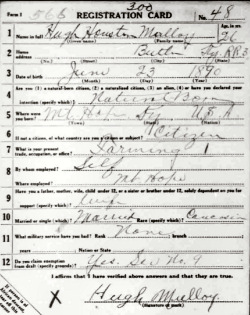 300
Form 1 565 REGISTRATION CARD No. 48
1 Name in full Hugh Houston Mulloy Age, in yrs. 26
2 Home address Butler Ky R R 3
(No.) (Street) (City) (State)
3 Date of birth June 23 1890
(Month) (Day) (Year)
4 Are you (1) a natural-born citizen, (2) a naturalized citizen, (3) an alien, (4) or have you declared your
intention (specify which)? Natural Born
5 Where were you born? Mt Hope U S A
(Town) (State) (Nation)
6 If not a citizen, of what country are you a citizen or subject? Citizen
7 What is your present trade, occupation, or office? Farming 1
8 By whom employed? Self
Where employed? Mt Hope
9 Have you a father, mother, wife, child under 12, or a sister or brother under 12, solely dependent on you for
support (specify which)? Wife
10 Married or single (which)? Married Race (specify which)? Caucasian
11 What military service have you had? Rank None branch
years Nation or State
12 Do you claim exemption from draft (specify grounds)? Yes. See No. 9
I affirm that I have verified above answers and that they are true.
X Hugh Mulloy
(Signature or mark)